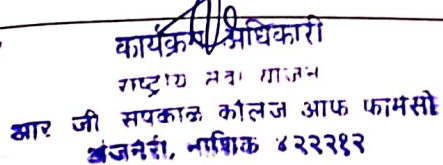 कार्यक्रम अधिकारी
राष्ट्रीय सेवा योजन
आर जी सपकाळ कॉलेज ऑफ फार्मसी
अंजनेरी, नाशिक ४२२२१२